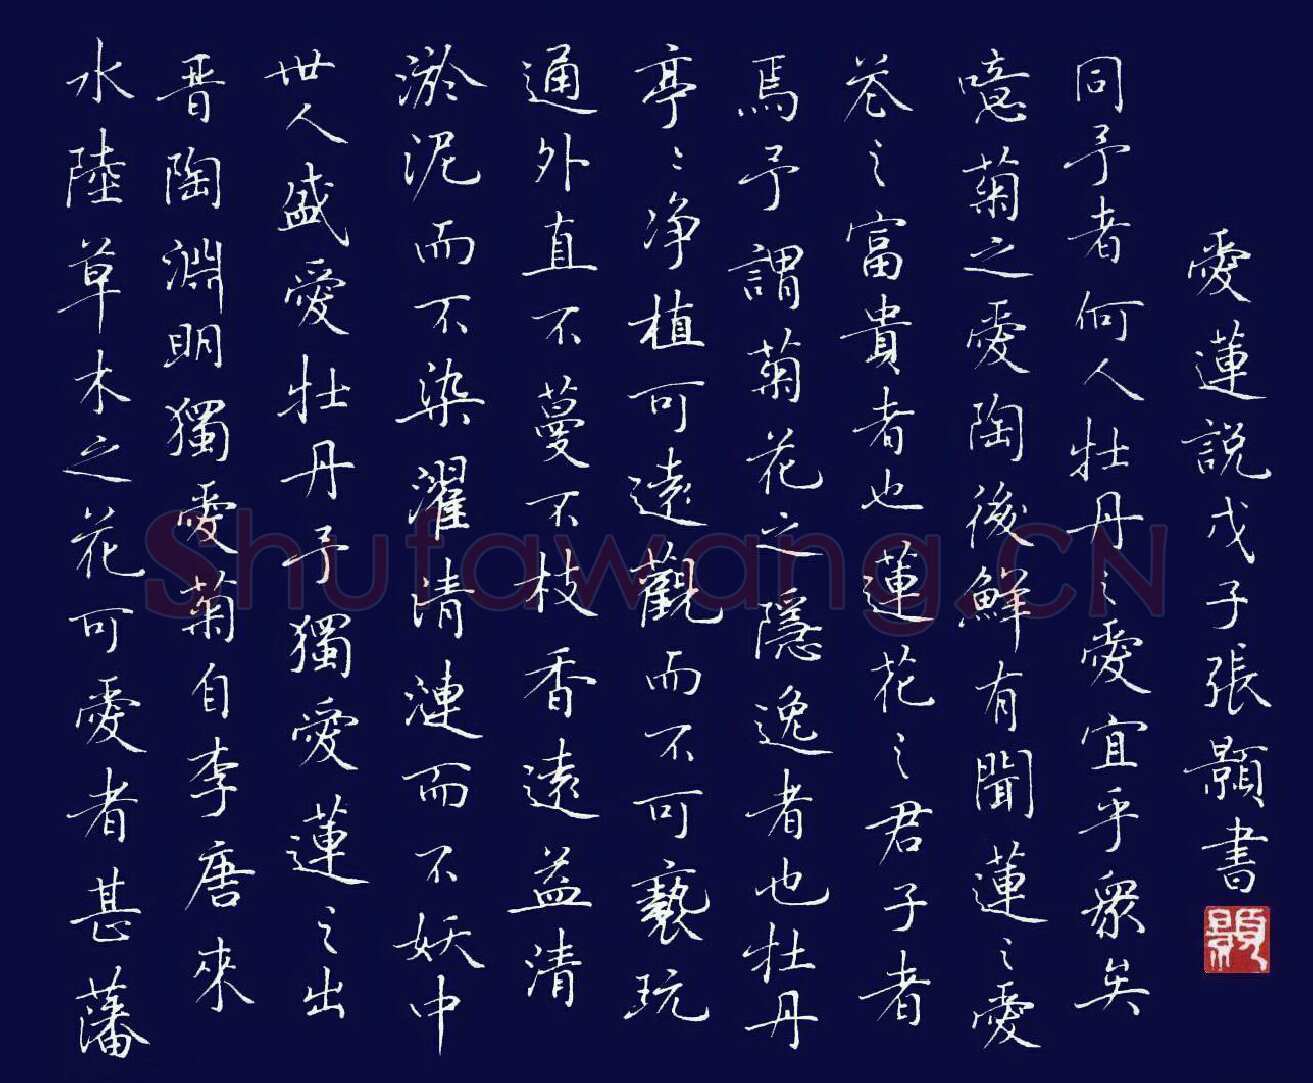 水陸草木之花可愛者甚藩
晋陶淵明獨愛菊自李唐來
世人盛愛牡丹予獨愛蓮之出
淤泥而不染濯清漣而不妖中
通外直不蔓不枝香遠益清
亭〻净植可遠觀而不可褻玩
焉予謂菊花之隱逸者也牡丹
花之富貴者也蓮花之君子者
噫菊之愛陶後鮮有聞蓮之愛
同予者何人牡丹之愛宜乎衆矣
愛蓮說戊子張顥書
Shufawang.CN